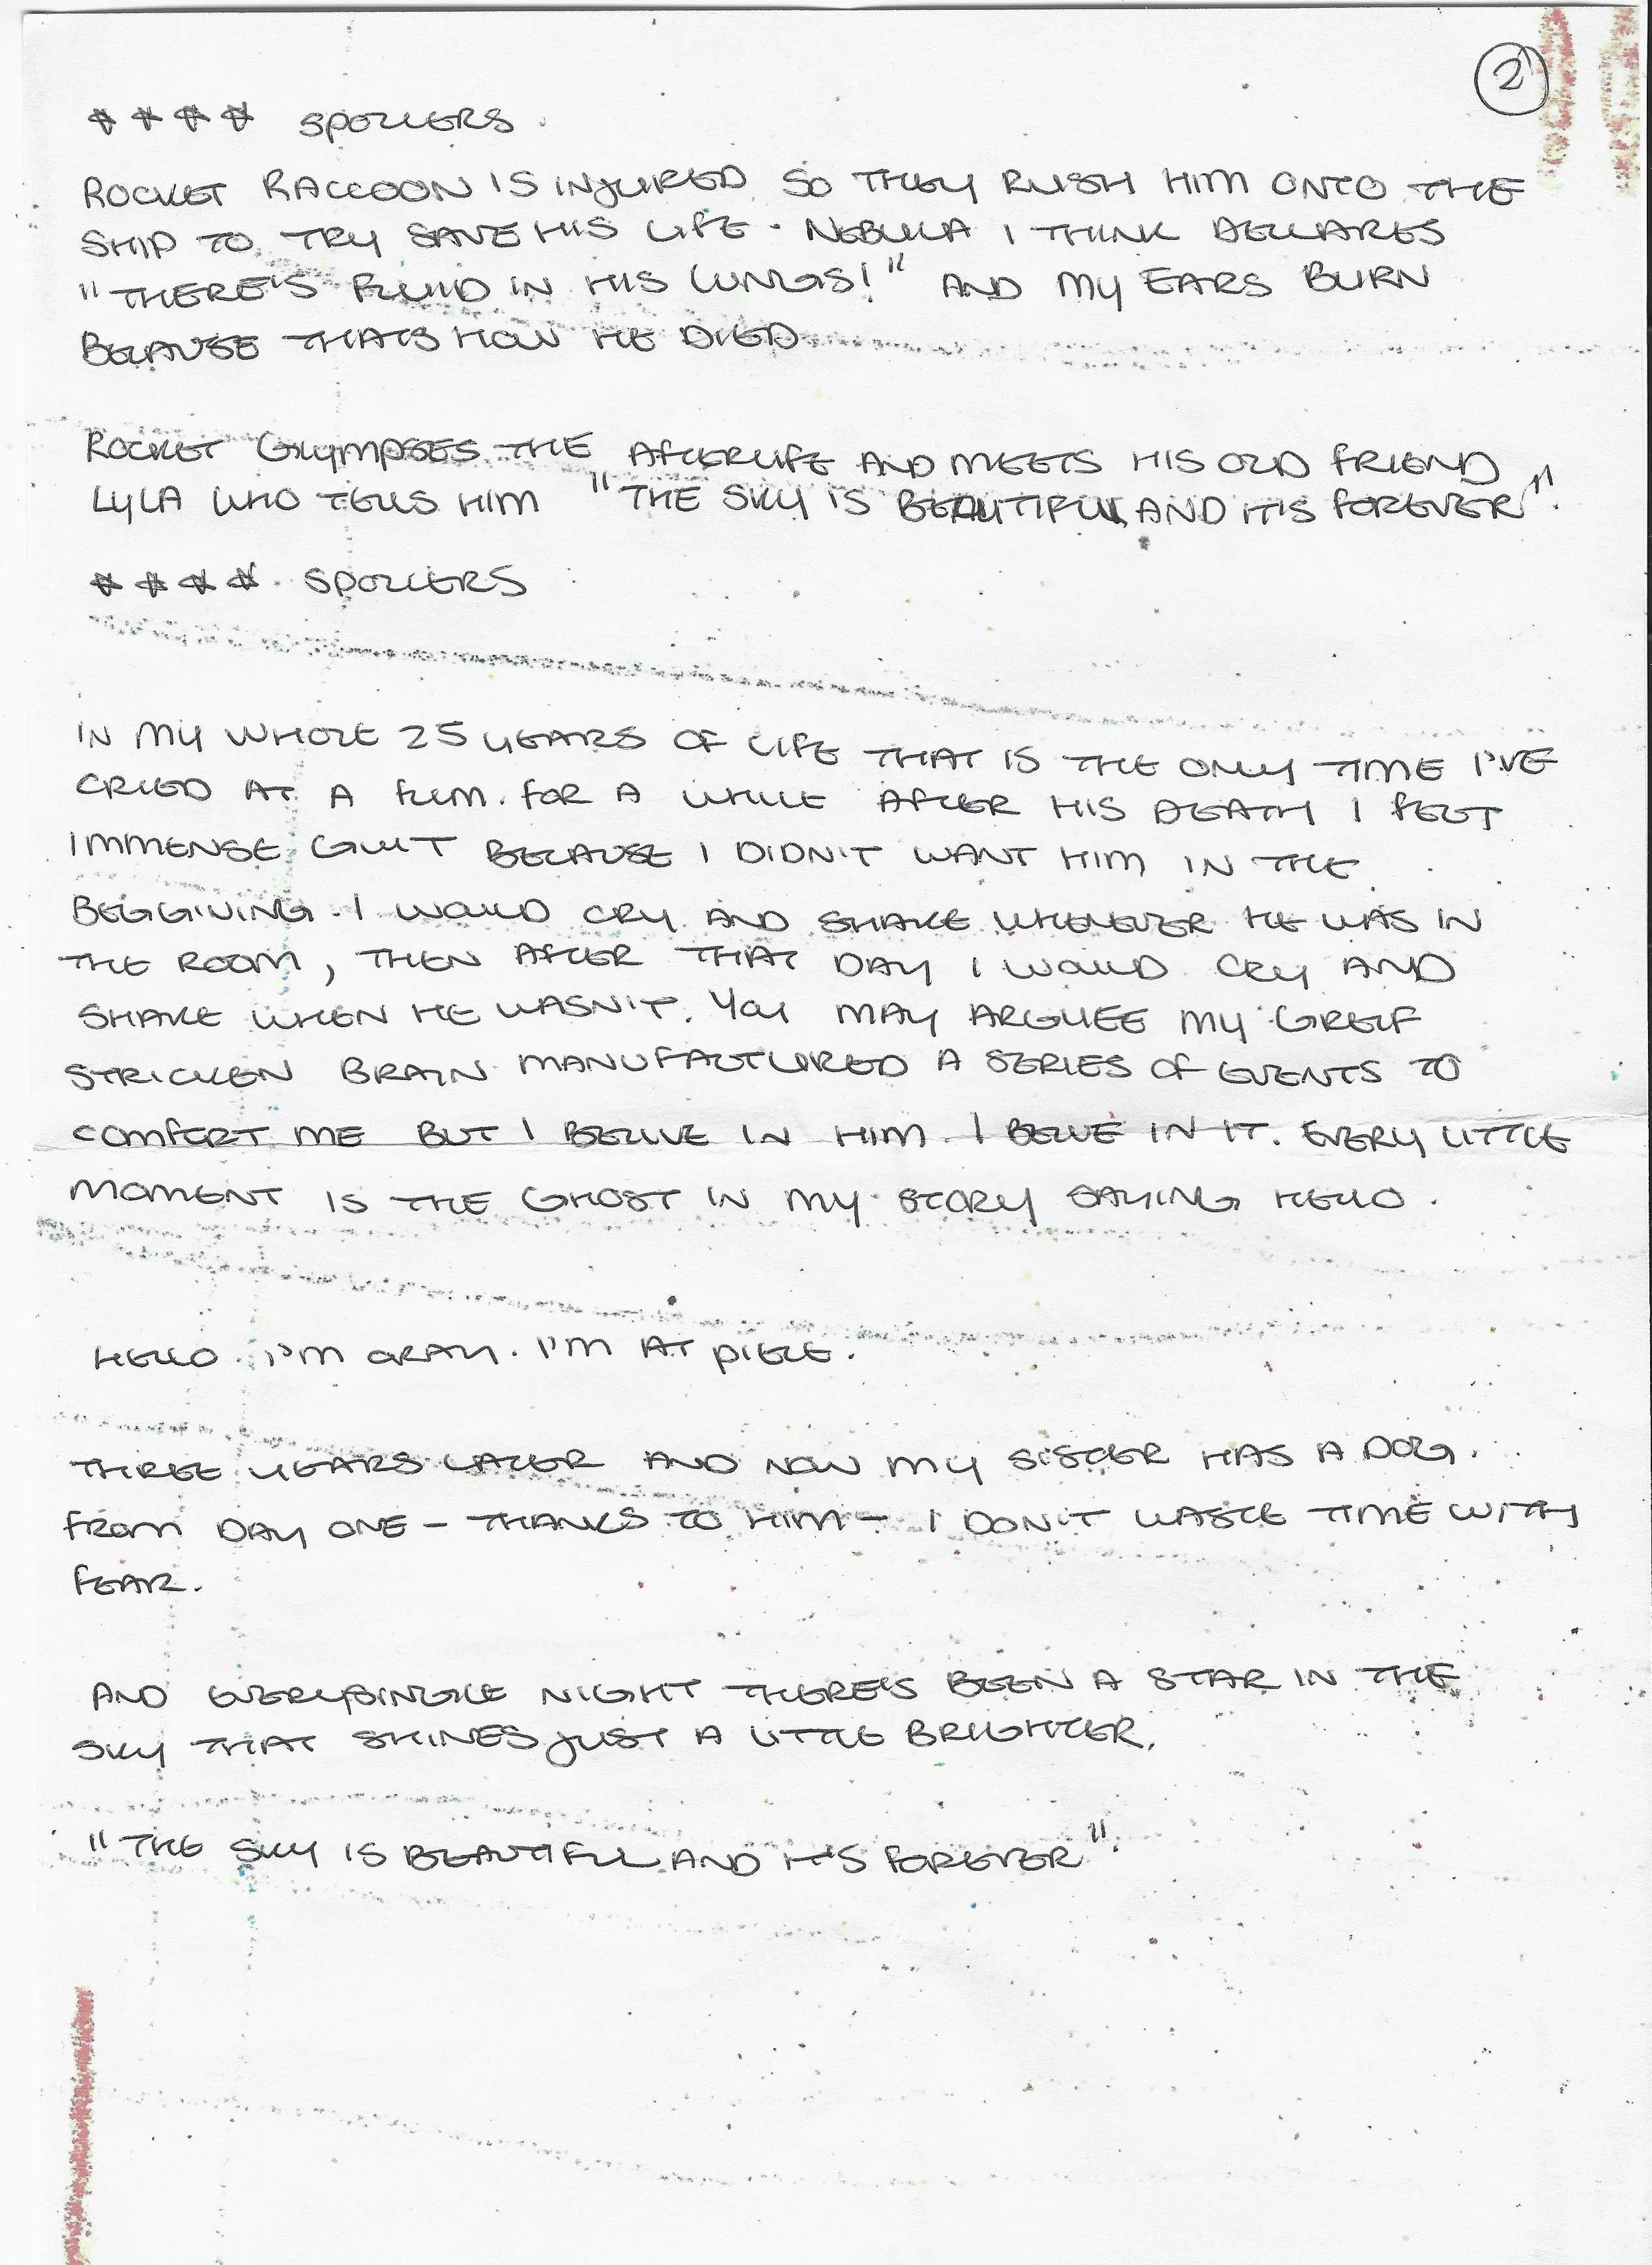 2
**** SPOILERS
ROCKET RACCOON IS INJURED SO THEY RUSH HIM ONTO THE
SHIP TO TRY SAVE HIS LIFE. NEBULA I THINK DECLARES
"THERE'S FLUID IN HIS LUNGS!" AND MY EARS BURN
BECAUSE THATS HOW HE DIED
ROCKET GLYMPSES THE AFTERLIFE AND MEETS HIS OLD FRIEND
LYLA WHO TELLS HIM "THE SKY IS BEAUTIFUL AND IT'S FOREVER".
**** SPOILERS
IN MY WHOLE 25 YEARS OF LIFE THAT IS THE ONLY TIME I'VE
CRIED AT A FILM. FOR A WHILE AFTER HIS DEATH I FELT
IMMENSE GUILT BECAUSE I DIDN'T WANT HIM IN THE
BEGGINING. I WOULD CRY AND SHAKE WHENEVER HE WAS IN
THE ROOM, THEN AFTER THAT DAY I WOULD CRY AND
SHAKE WHEN HE WASN'T. YOU MAY ARGUEE MY GREIF
STRICKEN BRAIN MANUFACTURED A SERIES OF EVENTS TO
COMFORT ME BUT I BELIVE IN HIM. I BELIVE IN IT. EVERY LITTLE
MOMENT IS THE GHOST IN MY STORY SAYING HELLO.
HELLO. I'M OKAY. I'M AT PIECE.
THREE YEARS LATER AND NOW MY SISTER HAS A DOG.
FROM DAY ONE - THANKS TO HIM - I DON'T WASTE TIME WITH
FEAR.
AND EVERY SINGLE NIGHT THERE'S BEEN A STAR IN THE
SKY THAT SHINES JUST A LITTLE BRIGHTER.
"THE SKY IS BEAUTIFUL AND IT'S FOREVER".